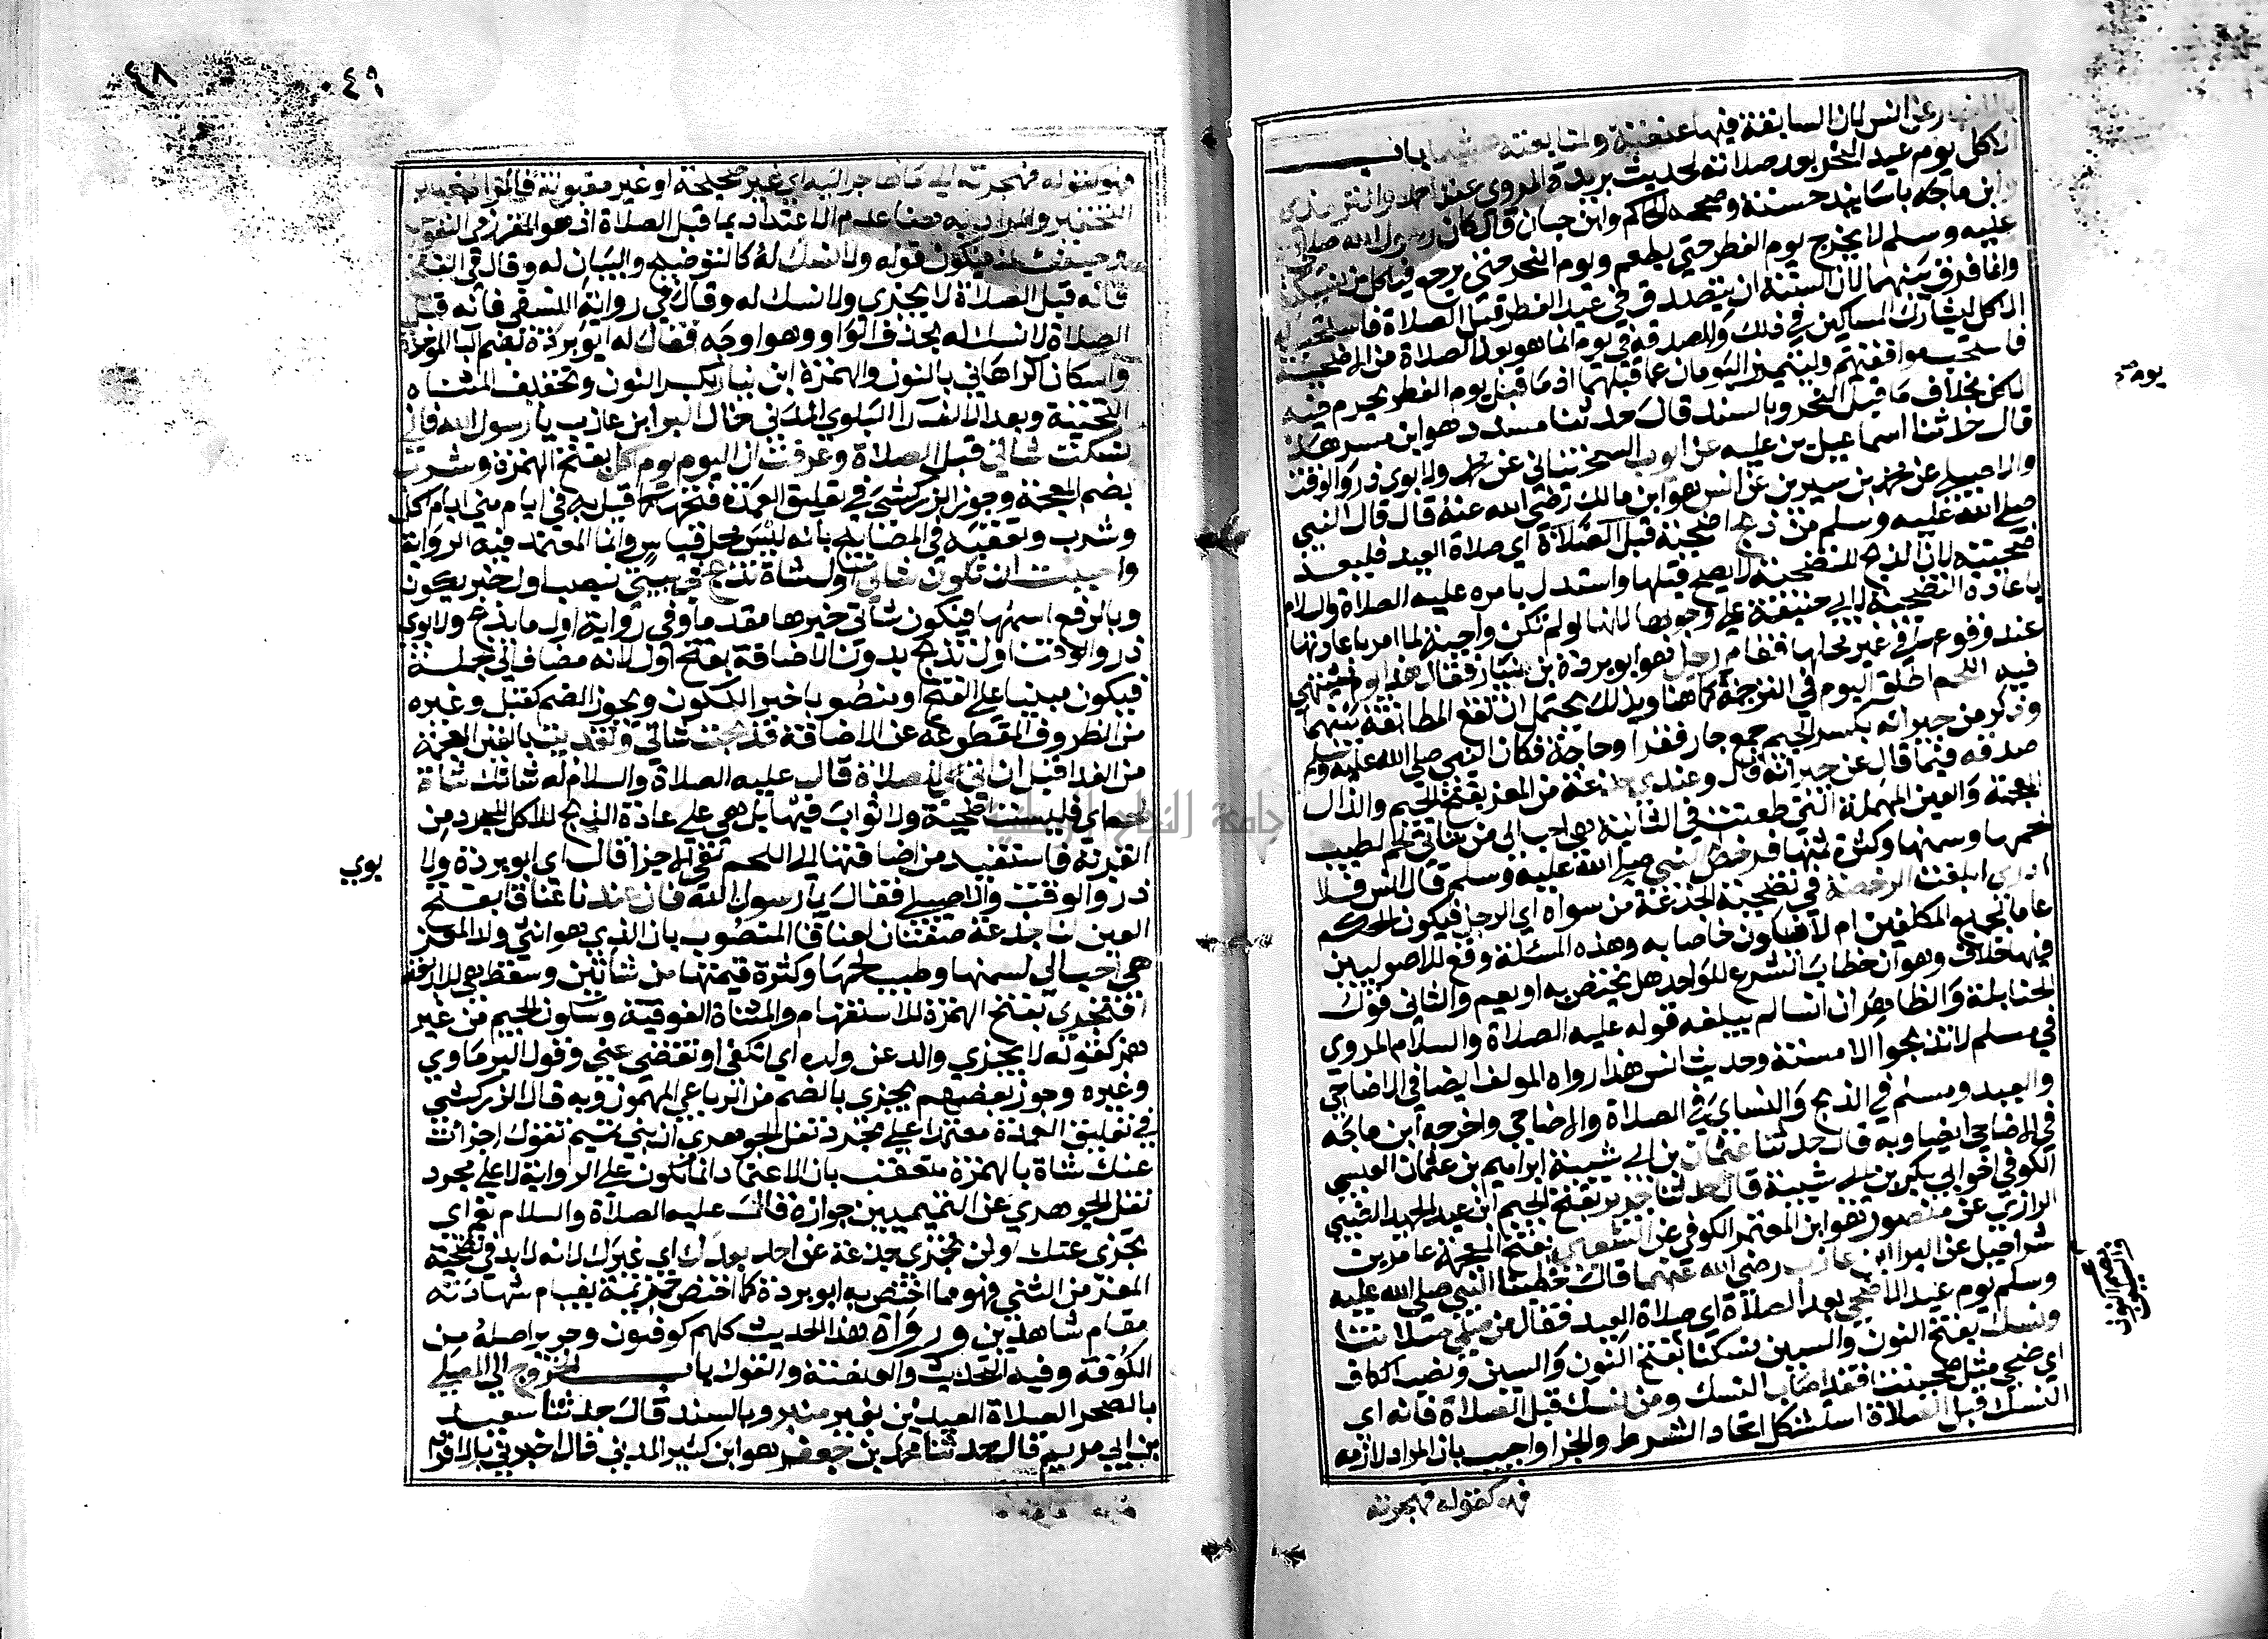 بالاخبار عن انس لان السابقة فيها عنعنة ولمتابعته هشيما باب
الاكل يوم عيد النحر بعد صلاته لحديث بريدة المروي عند احمد والترمذي
وابن ماجه باسانيد حسنة وصححه الحاكم وابن حبان قال كان رسول الله صلى الله
عليه وسلم لا يخرج يوم الفطر حتي يطعم ويوم النحر حتي يرجع فياكل من نسيكته
وانما فرق بينهما لان السنة ان يتصدق في عيد الفطر قبل الصلاة فاستحب له
الاكل ليشارك المساكين في ذلك والصدقة في يوم انما هو بعد الصلاة من الاضحية
فاستحب موافقتهم وليتميز اليومان عما قبلهما اذ ما قبل يوم الفطر يحرم فيه
الاكل بخلاف ما قبل النحر وبالسند قال حدثنا مسدد هو ابن مسرهد
قال حدثنا اسماعيل بن علية عن ايوب السختياني عن محمد ولابوي ذر والوقت
والاصيلي عن محمد بن سيرين عن انس هو ابن مالك رضي الله عنه قال قال النبي
صلي الله عليه وسلم من ذبح اضحيته قبل الصلاة اي صلاة العيد فليعد
ضحيته لان الذبح للتضحية لا يصح قبلها واستدل بامره عليه الصلاة والسلام
باعادة التضحية لابي حنيفة علي وجوبها لانها لو لم تكن واجبة لما امر باعادتها
عند وقوعها في غير محلها فقام رجل هو ابو بردة بن نيار فقال هذا يوم يشتهي
فيه اللحم اطلق اليوم في الترجمة كما هنا وبذلك يحتمل ان تقع المطابقة بينهما
وذكر من جيرانه بكسر الجيم جمع جار فقرا وحاجة فكان النبي صلي الله عليه وسلم
صدقه فيما قال عن جيرانه قال وعندي جذعة من المعز بفتح الجيم والذال
المعجمة والعين المهملة التي طعنت في الثانية هي احب الي من شاتي لحم لطيب
لحمها وسمنها وكثرة ثمنها فرخص النبي صلي الله عليه وسلم قال انس فلا
ادري ابلغت الرخصة في تضحية الجذعة من سواه اي الرجل فيكون الحكم
عاما لجميع المكلفين ام لا فيكون خاصا به وهذه المسئلة وقع للاصوليين
فيها خلاف وهو ان خطاب الشرع للواحد هل يختص به او يعم والثاني قول
الحنابلة والظاهر ان انسا لم يبلغه قوله عليه الصلاة والسلام المروي
في مسلم لا تذبحوا الا مسنة وحديث انس هذا رواه المولف ايضا في الاضاحي
والعيد ومسلم في الذبح والنساي في الصلاة والاضاحي واخرجه ابن ماجه
في الاضاحي ايضا وبه قال حدثنا عثمان بن ابي شيبة ابراهيم بن عثمان العبسي
الكوفي اخو ابي بكر بن ابي شيبة قال حدثنا جرير بفتح الجيم ابن عبد الحميد الضبي
الرازي عن منصور هو ابن المعتمر الكوفي عن الشعبي بفتح المعجمة عامر بن
شراحيل عن البرا ابن عازب رضي الله عنهما قال خطبنا النبي صلي الله عليه
وسلم يوم عيد الاضحي بعد الصلاة اي صلاة العيد فقال من صلي صلاتنا
ونسك بفتح النون والسين نسكنا بفتح النون والسين ونصب الكاف
اي ضحي مثل ضحيتنا فقد اصاب النسك ومن نسك قبل الصلاة فانه اي
النسك قبل الصلاة استشكل اتحاد الشرط والجزا واجيب بان المراد لازمه
فهو كقوله فهجرته
يوم
بضم النون
والسين
٠٤٩
٤٨
فهو كقوله فهجرته الي ما هاجر اليه اي غير صحيحة او غير مقبولة فالمراد به
التحقير والمراد به هنا عدم الاعتداد بما قبل الصلاة اذ هو المقرر في النفوس
وحينئذ فيكون قوله ولا نسك له كالتوضيح والبيان له وقال في الفتح
فانه قبل الصلاة لا يجزي ولا نسك له وقال في رواية النسفي فانه قبل
الصلاة لا نسك له بحذف الواو وهو اوجه فقال له ابو بردة بضم الموحدة
واسكان الراهاني بالنون والهمزة ابن نيار بكسر النون وتخفيف المثناه
التحتية وبعد الالف را البلوي المدني خال البرا بن عازب يا رسول الله فاني
نسكت شاتي قبل الصلاة وعرفت ان اليوم يوم اكل بفتح الهمزة وشرب
بضم المعجمة وجوز الزركشي في تعليق العمدة فتحها كما قيل به في ايام مني ايام اكل
وشرب وتعقبه في المصابيح بانه ليس محل قياس وانما المعتمد فيه الرواية
واحببت ان تكون شاتي اول شاة تذبح في بيتي بنصب اول خبر يكون
وبالرفع اسمها فيكون شاتي خبرها مقدما وفي رواية اول ما يذبح ولابوي
ذر والوقت اول تذبح بدون الاضافة بفتح اول لانه مضاف الي الجملة
فيكون مبنيا علي الفتح او منصوبا خبر الكون ويجوز الضم كقبل وغيره
من الظروف المقطوعة عن الاضافة فذبحت شاتي وتغديت بالغين المعجمة
من الغدا قبل ان اتي الصلاة قال عليه الصلاة والسلام له شاتك شاة
لحم اي فليست اضحية ولا ثواب فيها بل هي علي عادة الذبح للاكل المجرد من
القربة فاستفيد من اضافتها الي اللحم نفي الاجزا قال اي ابو بردة ولا
ذر والوقت والاصيلي فقال يا رسول الله فان عندنا عناقا بفتح
العين لنا جذعة صفتان لعناقا المنصوب بان الذي هو انثي ولد المعز
هي احب الي لسمنها وطيب لحمها وكثرة قيمتها من شاتين وسقط هي للاربعة
افتجزي بفتح الهمزة للاستفهام والمثناة الفوقية وسكون الجيم من غير
همز كقوله لا يجزي والد عن ولده اي اتكفي او تقضي عني وقول البرماوي
وغيره وجوز بعضهم يجزي بالضم من الرباعي المهموز وبه قال الزركشي
في تعليق العمدة معتمدا علي مجرد نقل الجوهري ان بني تميم تقول اجزات
عنك شاة بالهمزة متعقب بان الاعتماد انما يكون علي الرواية لا علي مجرد
نقل الجوهري عن التميميين جوازه قال عليه الصلاة والسلام نعم اي
تجزي عنك ولن تجزي جذعة عن احد بعدك اي غيرك لانه لا بد في تضحية
المعز من الثني فهو مما اختص به ابو بردة كما اختص خزيمة بقيام شهادته
مقام شاهدين ورواة هذا الحديث كلهم كوفيون وجرير اصله من
الكوفة وفيه التحديث والعنعنة والقول باب الخروج الي المصلي
بالصحرا لصلاة العيدين بغير منبر وبالسند قال حدثنا سعيد
بن ابي مريم قال حدثنا محمد بن جعفر هو ابن كثير المدني قال اخبرني بالافراد
بوي
جامعة النجاح الوطنية